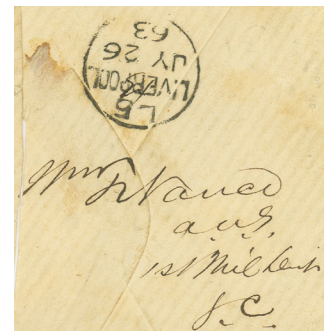 L5
LIVERPOOL
JY 26
63
Wm F. Nance
a.a.g.
1st Mil Dist
S.C.